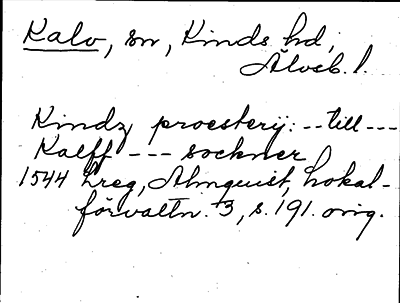 Kalv, sn, Kinds hd,
Älvsb. l.
Kindz proesterij: -- till ---
Kalff --- sockner
1544 Lreg, Almquist, Lokal-
förvaltn. 3, s. 191. orig.